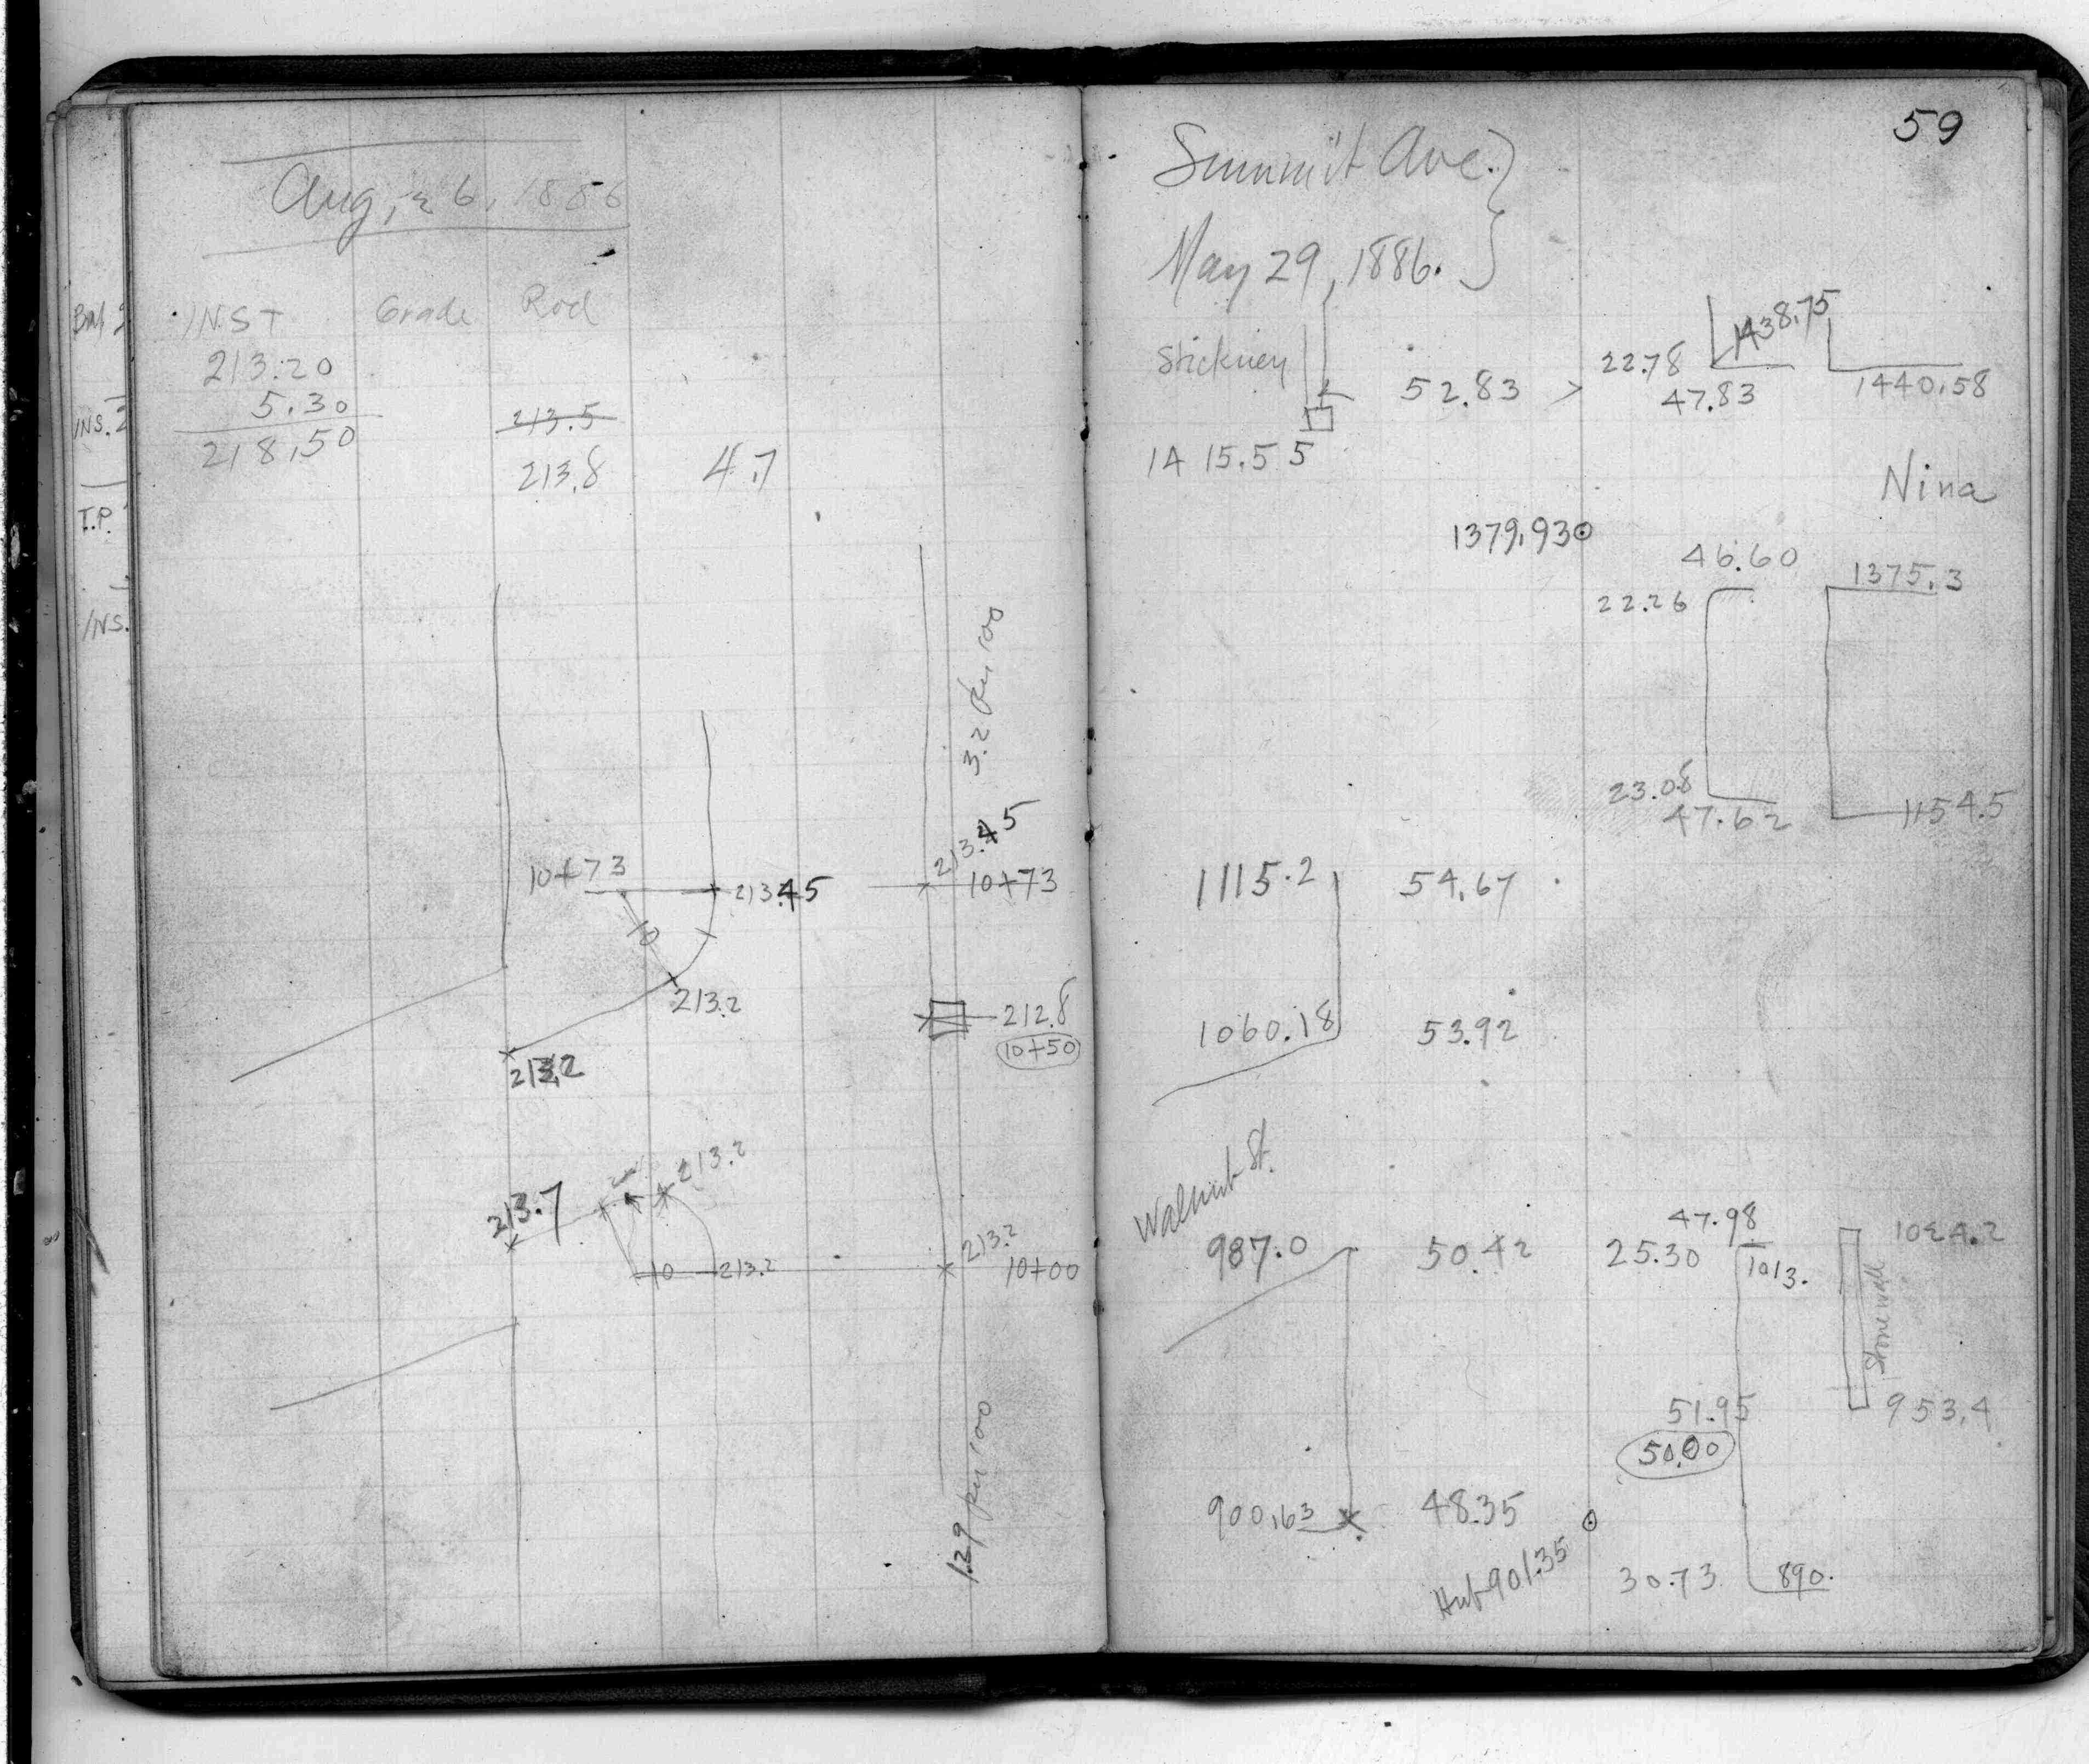 Aug, 26, 1886
INST Grade Rod
213.20
5.30
218.50
213.5
213.8 4.7
3.2 per 100
10+73
213.45
213.45
10+73
10
213.2
213.2
212.8
10+50
213.2
213.7
10
213.2
213.2
10+00
1.29 per 100
BM
INS. 2
T.P.
INS.
59
Summit Ave.
May 29, 1886.
Stickney
52.83
22.78
47.83
1438.75
1440.58
1415.55
Nina
1379.93
46.60
1375.3
22.26
23.08
47.62
1154.5
1115.2
54.67
1060.18
53.92
Walnut St.
987.0
50.42
47.98
25.30
1013.
1024.2
Stone wall
51.95
50.00
953.4
900.63
48.35
Hub 901.35
30.73
890.